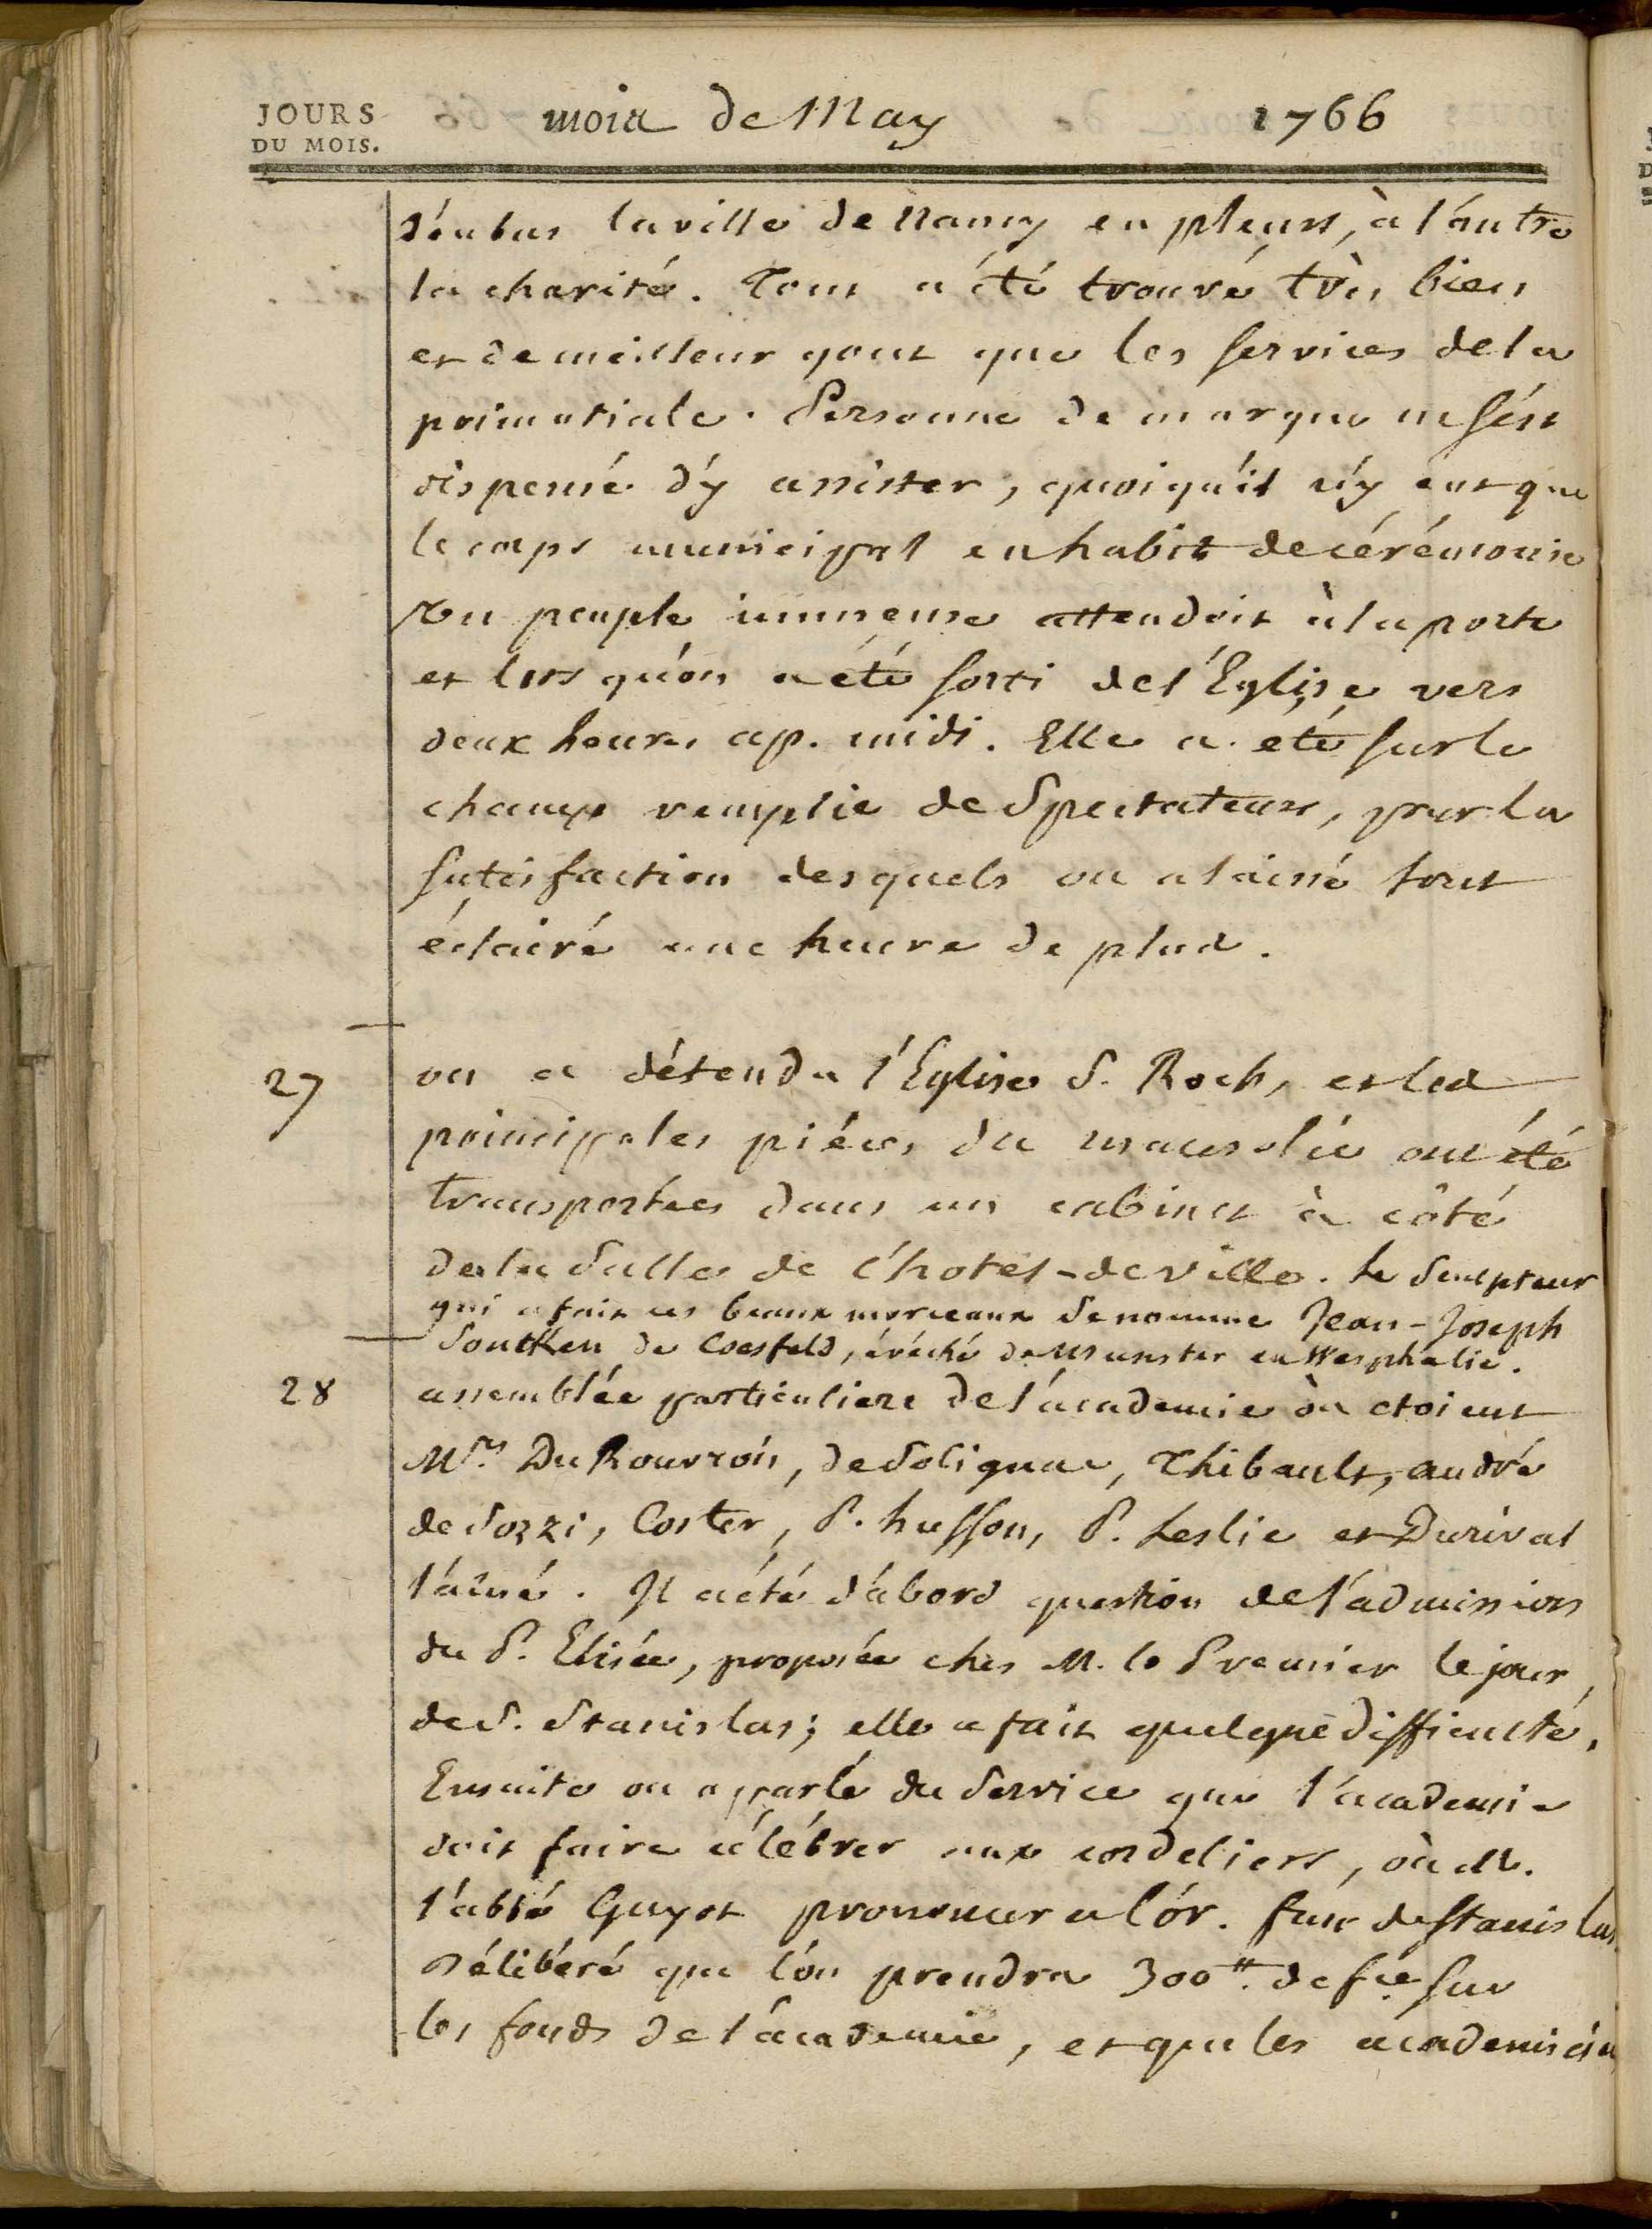 JOURS
DU MOIS.
mois de May 1766
d'enbas la ville de Nancy en pleurs, à l'autre
la charité. Tout a été trouvé très bien
et de meilleur gout que les services de la
primatiale. Personne de marque ne s'est
dispensé d'y assister, quoiqu'il n'y eut que
le corps municipal en habit de cérémonie
Un peuple immense attendoit à la porte
et lors qu'on a été sorti de l'Eglise vers
deux heures ap. midi. Elle a été sur le
champ remplie de Spectateurs, pour la
satisfaction desquels on a laissé tout
éclairé une heure de plus.
27 on a détendu l'Eglise S. Roch, et les
principales piéces du mausolée ont été
transportees dans un cabinet à côté
de la Salle de l'hotel-de ville. Le Sculpteur
qui a fait ces beaux morceaux se nomme Jean-Joseph
Sontken de Coesfeld, évêché de Munster en Wesphalie.
28 assemblée particuliere de l'académie où etoient
Mrs. Du Rouvrois, de Solignac, Thibault, andré
de Sozzi, Coster, P. husson, P. Leslie et Durival
l'aîné. Il a été d'abord question de l'admission
du P. Elisée, proposée ches M. le Premier le jour
de S. Stanislas; elle a fait quelque difficulté.
Ensuite on a parlé du Service que l'academie
doit faire célébrer aux cordeliers, où M.
l'abbé Guyot prononcera l'or. fun. de Stanislas.
Délibéré que l'on prendra 300tt. de fce sur
les fonds de l'académie, et que les academicien